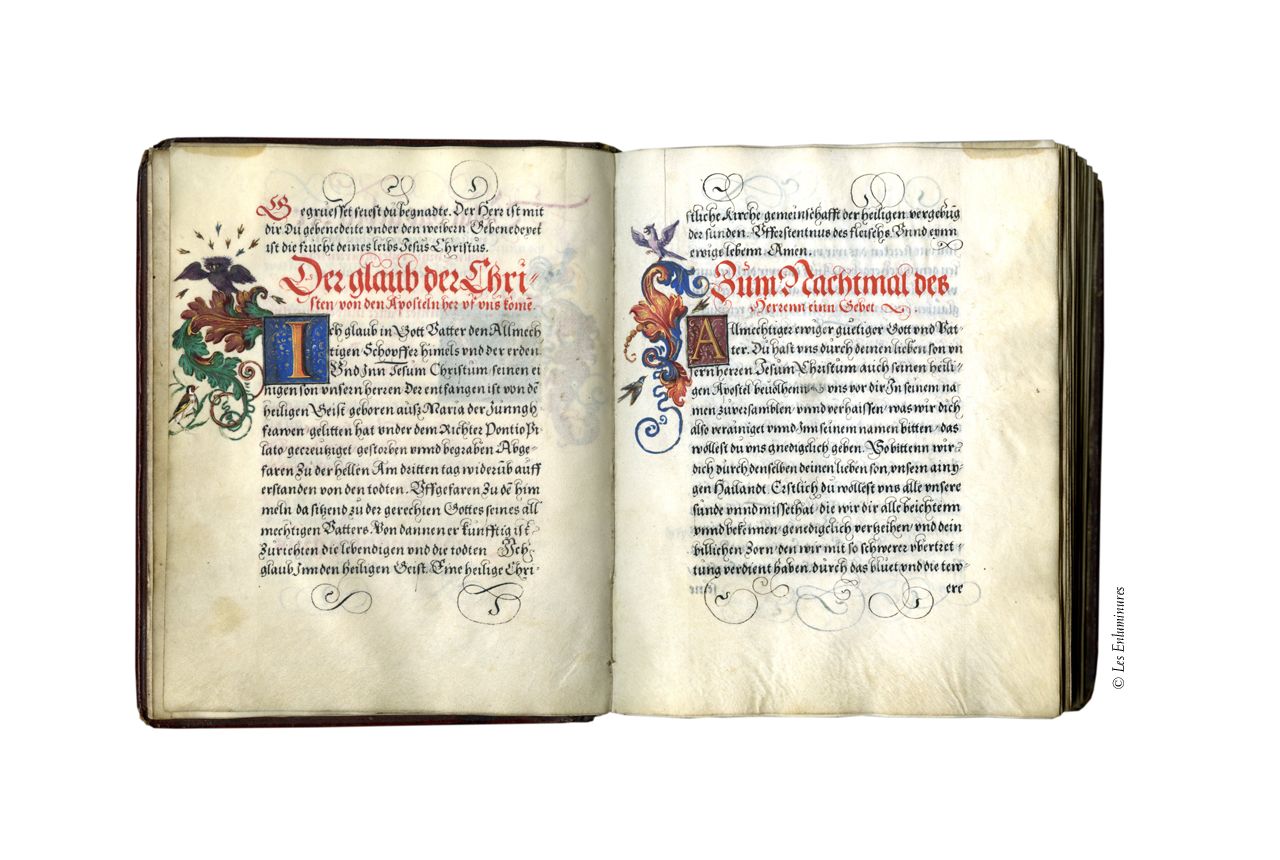 Gegruesset seiest du begnadte. Der Herr ist mit
dir Du gebenedeite vnder den weibern Gebenedeyet
ist die frucht deines leibs Jesus Christus.
Der glaub der Chri-
sten von den Aposteln her vf vns komē.
Ich glaub in Gott Vatter den Allmech-
tigen Schopffer himels vnd der erden
Vnd Inn Jesum Christum seinen ei
nigen son vnsern herren Der entfangen ist von dē
heiligen Geist geboren ausz Maria der Junngh
frawen gelitten hat vnder dem Richter Pontio Pi
lato gecreutziget gestorben vnnd begraben Abge-
faren Zu der hellen Am dritten tag widerub auff
erstanden von den todten. Vffgefaren Zu dē him
meln da sitzend zu der gerechten Gottes seines all
mechtigen Vatters. Von dannen er kunfftig ist
Zurichten die lebendigen vnd die todten Ich
glaub Inn den heiligen Geist. Eine heilige Chri-
stliche Kirche gemeinschafft der heiligen vergebūg
der sunden. Vfferstentnus des fleischs Vnd eynn
ewigs lebenn. Amen.
Zum Nachtmal des
Herrenn einn Gebet
Allmechtiger ewiger guetiger Gott vnd Vat-
ter. Du hast vns durch deinen lieben son vn
sern herren Jesum Christum auch seinen heili-
gen Apostel beuolhenn vns vor dir Zu seinem na
men zuversamblen vnnd verhaissen was wir dich
also verainiget vnnd Inn seinem namen bitten das
wollest du vns gnedigelich geben. So bitten wir
dich durch denselben deinen lieben son vnsern ainy-
gen Hailandt. Erstlich du wöllest vns alle vnsere
sunde vnnd missethat die wir dir alle beichtenn
vnnd bekennen genediglich verzeihen vnd dein
billichen Zorn den wir mit so schwerer vbertret
tung verdient haben durch das bluet vnd die tew
ere
© Les Enluminures